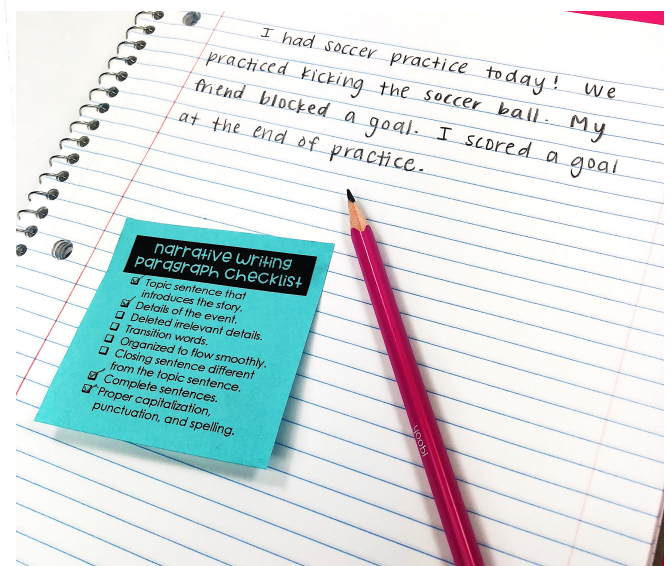 I had soccer practice today! We
practiced kicking the soccer ball. My
friend blocked a goal. I scored a goal
at the end of practice.
narrative writing
paragraph checklist
Topic sentence that
introduces the story.
Details of the event.
Deleted irrelevant details.
Transition words.
Organized to flow smoothly.
Closing sentence different
from the topic sentence.
Complete sentences.
Proper capitalization,
punctuation, and spelling.
yoobi